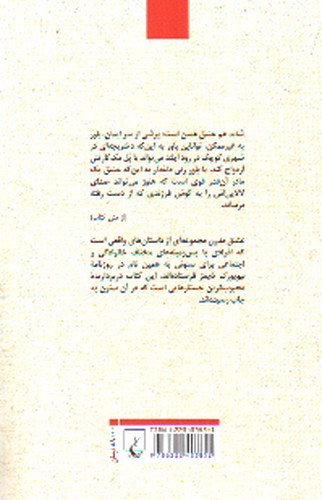 شاید هم عشق همین است: پرشی از سر ایمان، باور
به غیرممکن، توانایی باور به این‌که دختربچه‌ای در
شهری کوچک در رود آیلند می‌تواند با پل مک‌کارتنی
ازدواج کند، یا باور زنی داغدار به این‌که عشق یک
مادر آن‌قدر قوی است که هنوز می‌تواند صدای
لالایی‌اش را به گوش فرزندی که از دست رفته
برساند.
از متن کتاب
عشق مدرن مجموعه‌ای از داستان‌های واقعی است
که افرادی با پس‌زمینه‌های مختلف خانوادگی و
اجتماعی برای ستونی به همین نام در روزنامهٔ
نیویورک تایمز فرستاده‌اند. این کتاب دربردارندهٔ
محبوب‌ترین جستارهایی است که در آن ستون به
چاپ رسیده‌اند.